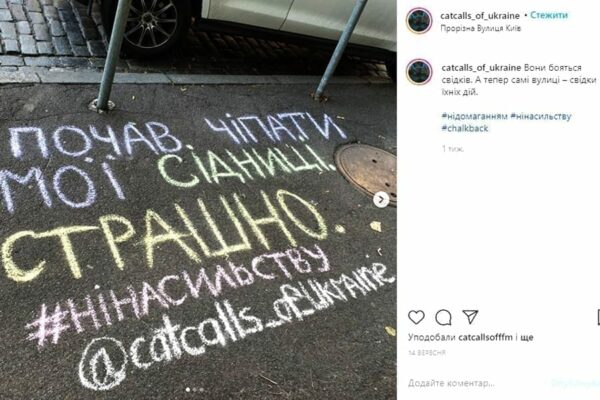 ПОЧАВ ЧІПАТИ
МОЇ СІДНИЦІ.
СТРАШНО.
#НІНАСИЛЬСТВУ
@catcalls_of_UKRAINE
catcalls_of_ukraine • Стежити
Прорізна Вулиця Київ
catcalls_of_ukraine Вони бояться
свідків. А тепер самі вулиці – свідки
їхніх дій.
#нідомаганням #нінасильству
#chalkback
1 тиж.
Уподобали catcallsofffm і ще
14 ВЕРЕСНЯ
Додайте коментар...